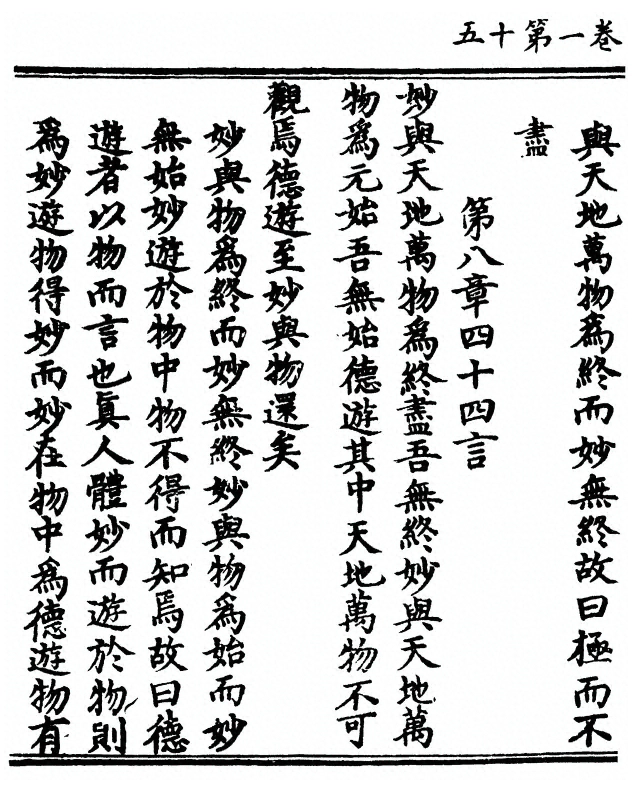 卷一第十五
與天地萬物爲終而妙無終故曰極而不
盡
第八章四十四言
妙與天地萬物爲終盡吾無終妙與天地萬
物爲元始吾無始德遊其中天地萬物不可
觀焉德遊至妙與物還矣
妙與物爲終而妙無終妙與物爲始而妙
無始妙遊於物中物不得而知焉故曰德
遊者以物而言也眞人體妙而遊於物則
爲妙遊物得妙而妙在物中爲德遊物有